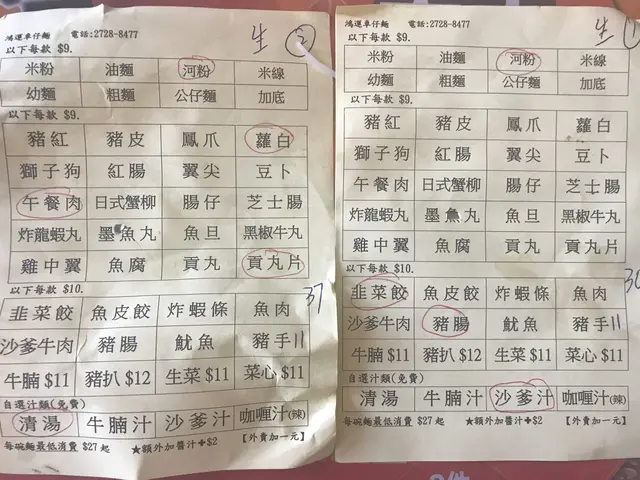 鴻運車仔麵 電話:2728-8477
生 ②
以下每款 $9.
米粉 油麵 河粉 米線
幼麵 粗麵 公仔麵 加底
以下每款 $9.
豬紅 豬皮 鳳爪 蘿白
獅子狗 紅腸 翼尖 豆卜
午餐肉 日式蟹柳 腸仔 芝士腸
炸龍蝦丸 墨魚丸 魚旦 黑椒牛丸
雞中翼 魚腐 貢丸 貢丸片
以下每款 $10.
37
韭菜餃 魚皮餃 炸蝦條 魚肉
沙爹牛肉 豬腸 魷魚 豬手11
牛腩 $11 豬扒 $12 生菜 $11 菜心 $11
自選汁類(免費)
清湯 牛腩汁 沙爹汁 咖喱汁(辣)
每碗麵最低消費 $27 起 ★額外加醬汁+$2 【外賣加一元】
鴻運車仔麵 電話:2728-8477
生 ①
以下每款 $9.
米粉 油麵 河粉 米線
幼麵 粗麵 公仔麵 加底
以下每款 $9.
豬紅 豬皮 鳳爪 蘿白
獅子狗 紅腸 翼尖 豆卜
午餐肉 日式蟹柳 腸仔 芝士腸
炸龍蝦丸 墨魚丸 魚旦 黑椒牛丸
雞中翼 魚腐 貢丸 貢丸片
以下每款 $10.
韭菜餃 魚皮餃 炸蝦條 魚肉
沙爹牛肉 豬腸 魷魚 豬手11
牛腩 $11 豬扒 $12 生菜 $11 菜心 $11
自選汁類(免費)
清湯 牛腩汁 沙爹汁 咖喱汁(辣)
每碗麵最低消費 $27 起 ★額外加醬汁+$2 【外賣加一元】